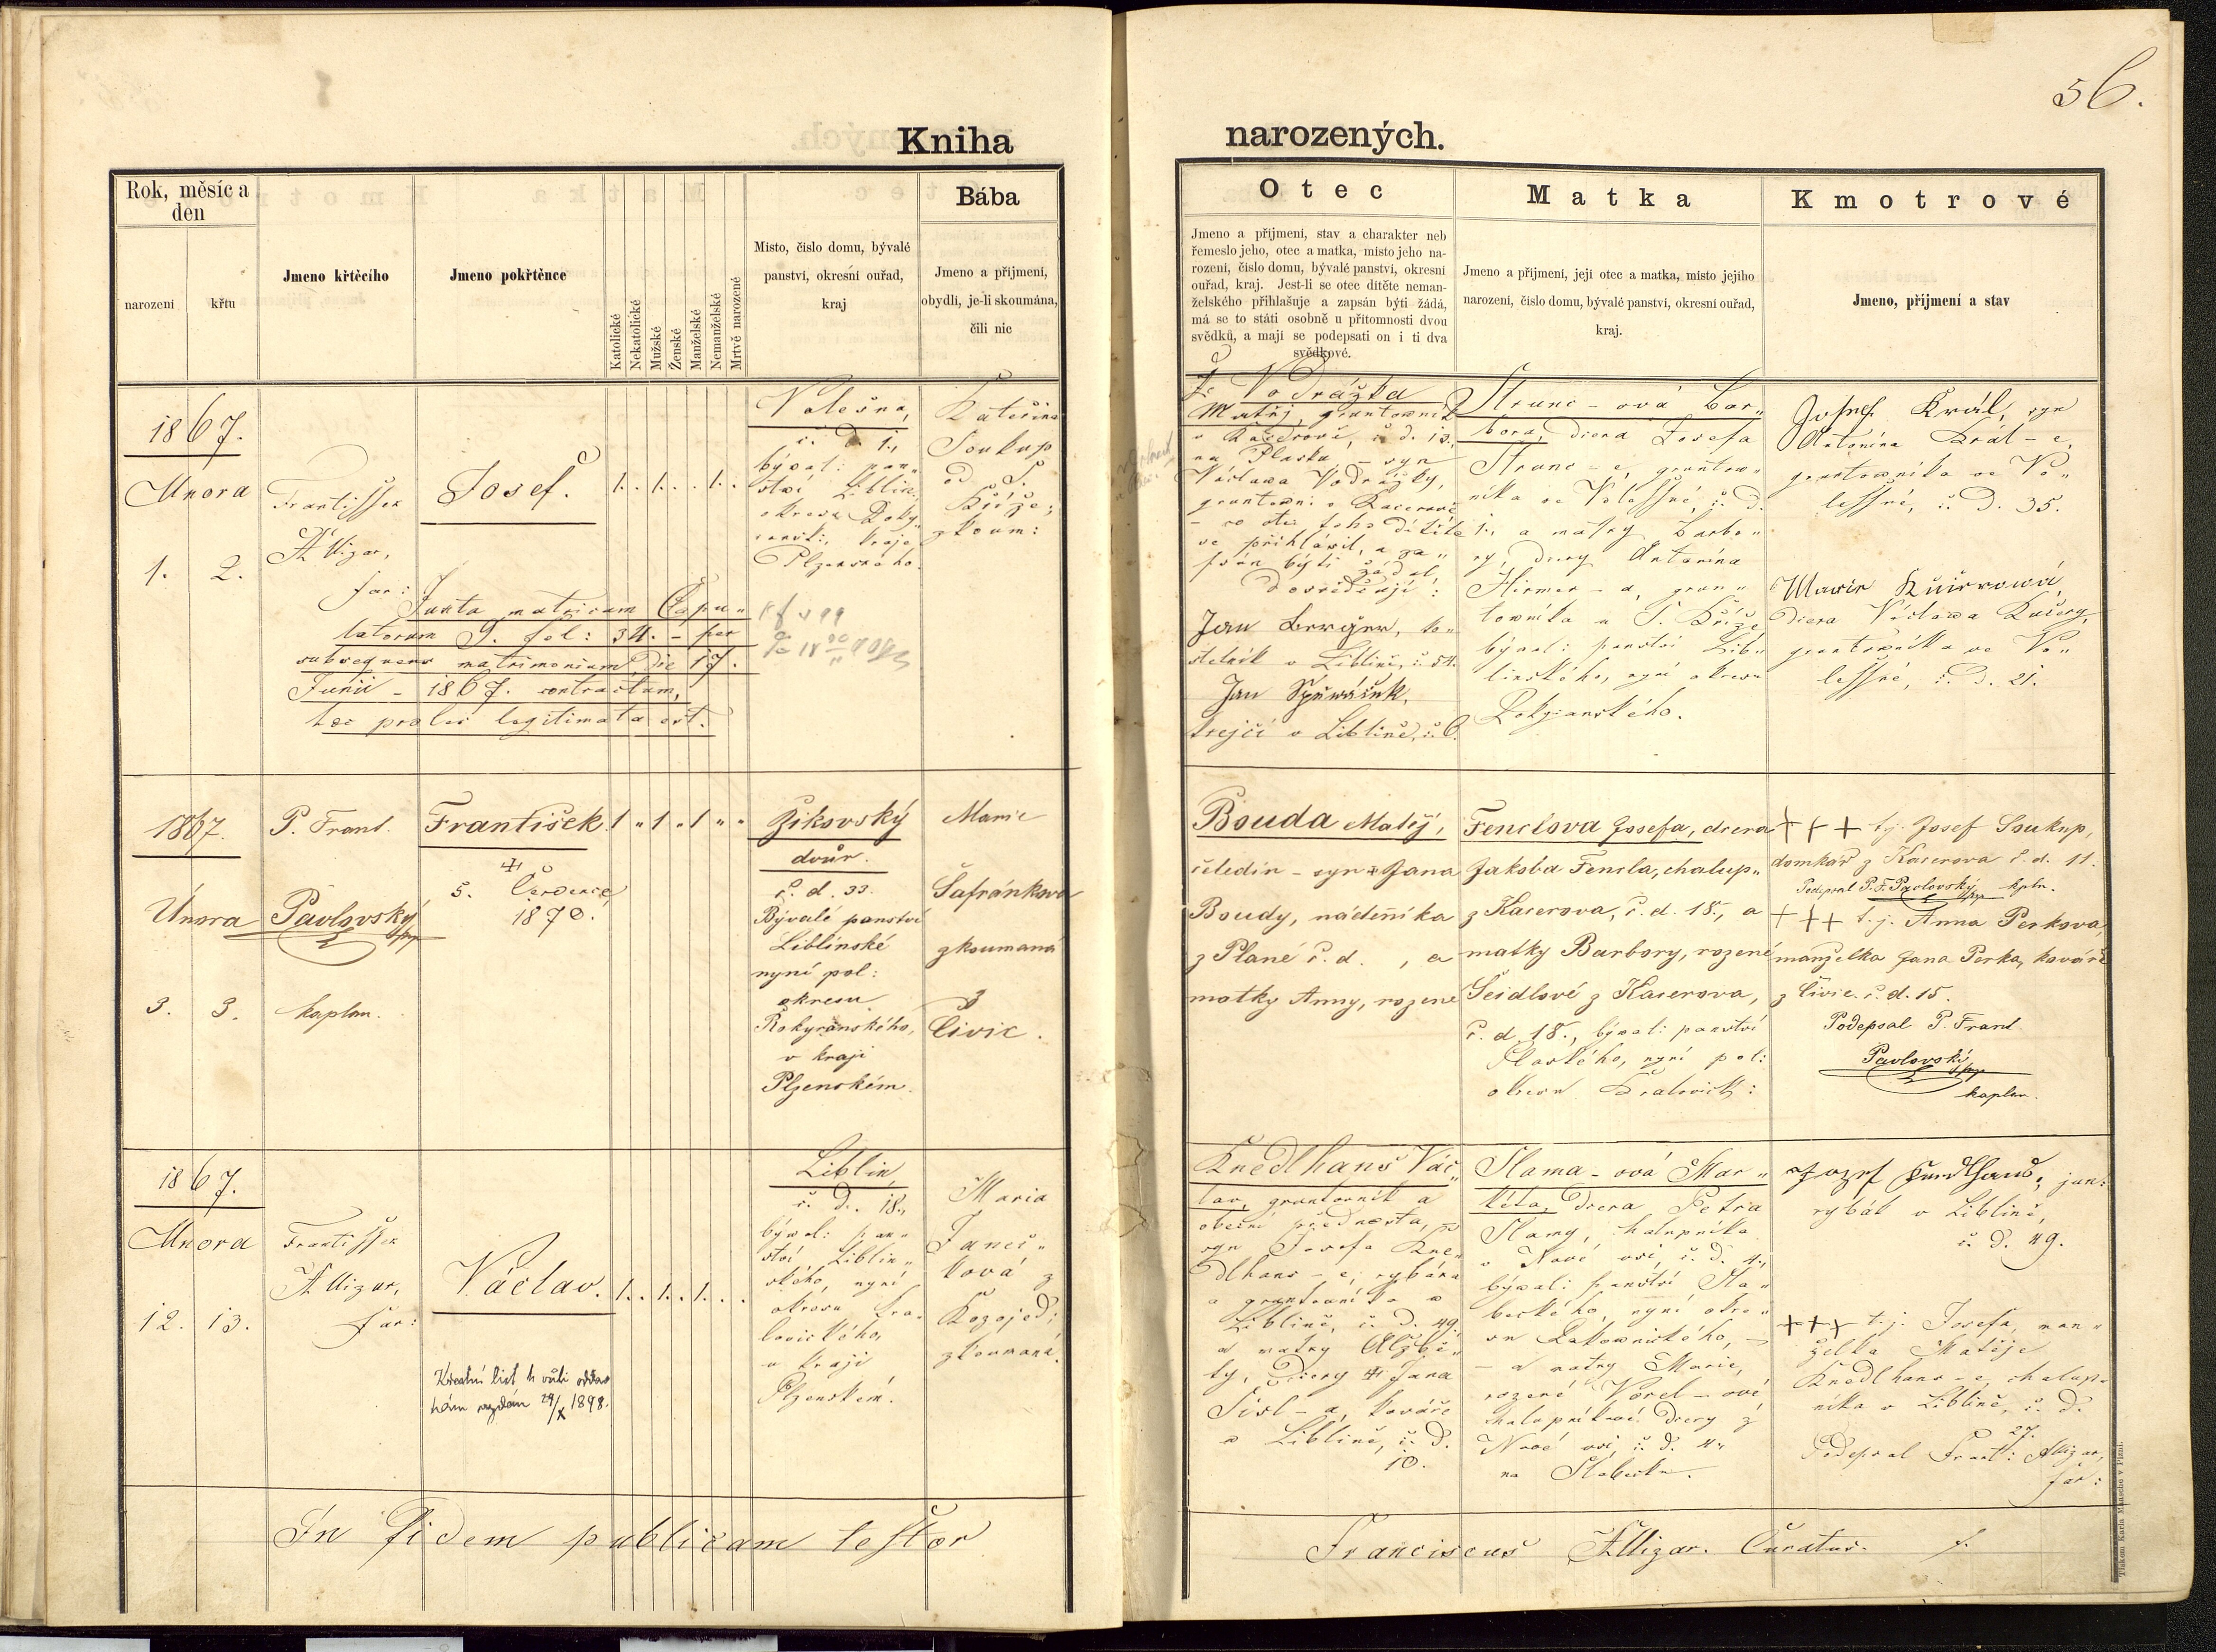 Kniha
Rok, měsíc a
den
narození
křtu
Jmeno křtěcího
Jmeno pokřtěnce
Katolické
Nekatolické
Mužské
Ženské
Manželské
Nemanželské
Mrtvě narozené
Místo, číslo domu, bývalé
panství, okresní ouřad,
kraj
Bába
Jmeno a přijmení,
obydlí, je-li skoumána,
čili nic
1867.
Unora
1. 2.
Frantissek
far:
Josef.
1. . 1. . . 1. .
Juxta matricam Copu„
latorum fol: 34. – per
subsequens matrimonium die 17.
Junii – 1867. contractum,
hec proles legitimata est.
Volešna,
č. d. 1.,
býval: pan„
ství Liblin.
okresu Roky„
kraje
Plzenského.
Kateřina
Soukup
od S.
Kříže;
zkoum:
1867.
Února
3. 3.
P. Frant.
Pavlovský
kaplan.
František.
5. Července
1870.
1 „ 1 „ 1 „ „
Žikovský
dvůr.
č. d. 33.
Bývalé panství
Liblínské
nyní pol:
okresu
Rokycanského,
v kraji
Plzenském.
Marie
Šafránkova
zkoumaná
z
Čivic.
1867.
Unora
12. 13.
Frantissek
far:
Václav.
1. . 1. . 1. . .
29/X 1898.
Liblin,
č. d. 18.,
býval: pan„
ství Liblin„
ského, nyní
okresu Kra„
lovického,
v kraji
Plzenském.
Maria
Janeč„
ková z
Kozojed;
zkoumaná.
In fidem publicam testor
56.
narozených.
Otec
Jmeno a přijmení, stav a charakter neb
řemeslo jeho, otec a matka, místo jeho na-
rození, číslo domu, bývalé panství, okresní
ouřad, kraj. Jest-li se otec dítěte neman-
želského přihlašuje a zapsán býti žádá,
má se to státi osobně u přítomnosti dvou
svědků, a mají se podepsati on i ti dva
svědkové.
Matka
Jmeno a přijmení, její otec a matka, místo jejího
narození, číslo domu, bývalé panství, okresní ouřad,
kraj.
Kmotrové
Jmeno, příjmení a stav
Vodrážka
Matěj, gruntovník
v Kacerově, č. d. 13.,
na Plasku – syn
Václava Vodrážky,
gruntovní v Kacerově
– co otec toho dítěte
se přihlásil, a za„
psán býti žádal
dosvědčují:
Jan Berger, ko„
stelník v Liblíně, č. 54.
Jan
krejčí v Liblíně, č. 6.
Strunc – ová Bar„
bora, dcera Josefa
Strunc – e, gruntow„
níka ve Volessné, č. d.
1., a matky Barbo„
ry, dcery Antonína
gran„
towníka u S. Kříže
býval: panství Lib„
linského, nyní okresu
Rokycanského.
Josef Král, syn
Antonína Král – e,
gruntowníka ve Vo„
lessné, č. d. 35.
Marie
dcera Václava Kučery,
gruntowníka ve Vo„
lessné, č. d. 21.
Bouda Matěj,
čeledín – syn Jana
Boudy, nádeníka
z Plané č. d. , a
matky Anny, rozené
Fenclova Josefa, dcera
Jakoba Fencla, chalup„
z Kacerova, č. d. 18., a
matky Barbory, rozené
Šeidlové z Kacerova,
č. d. 18., býval: panství
Plaského, nyní pol:
okresu Kralovick:
+++ tj. Josef Soukup,
domkář z Kacerova č. d. 11.
Podepsal P. F. Pavlovský kpln.
+++ t. j. Anna Perkova,
manželka Jana Perka, kováře
z Čivic. č. d. 15.
Podepsal P. Frant.
Pavlovský
kaplan.
Knedlhans Vác„
lav, gruntovník a
obecní přednosta,
syn Josefa Kne„
dlhans – e, rybáka
a gruntovníka v
Liblíně, č. d. 49.
a matky Alžbě„
ty, dcery Jana
Šisl – a, kováře
v Liblíně, č. d.
10.
Slama – ová Mar„
kéta, dcera Petra
Slamy, chalupníka
v Nové vsi, č. d. 4.,
býval: panství Sla„
beckého, nyní okre„
su Rakovnického,
– a matky Marie,
rozené Vorel – ové
chalupníkové dcery z
Nové vsi, č. d. 4.
na Slabecku.
Jozef jun:
rybák v Liblíně,
č. d. 49.
+++ t. j. Josefa, man„
želka Matěje
Knedlhans – e, chalup„
níka v Liblíně, č. d.
27.
Podepsal Frant:
far:
Franciscus Curatus.
Tiskem Karla Maasche v Plzni.